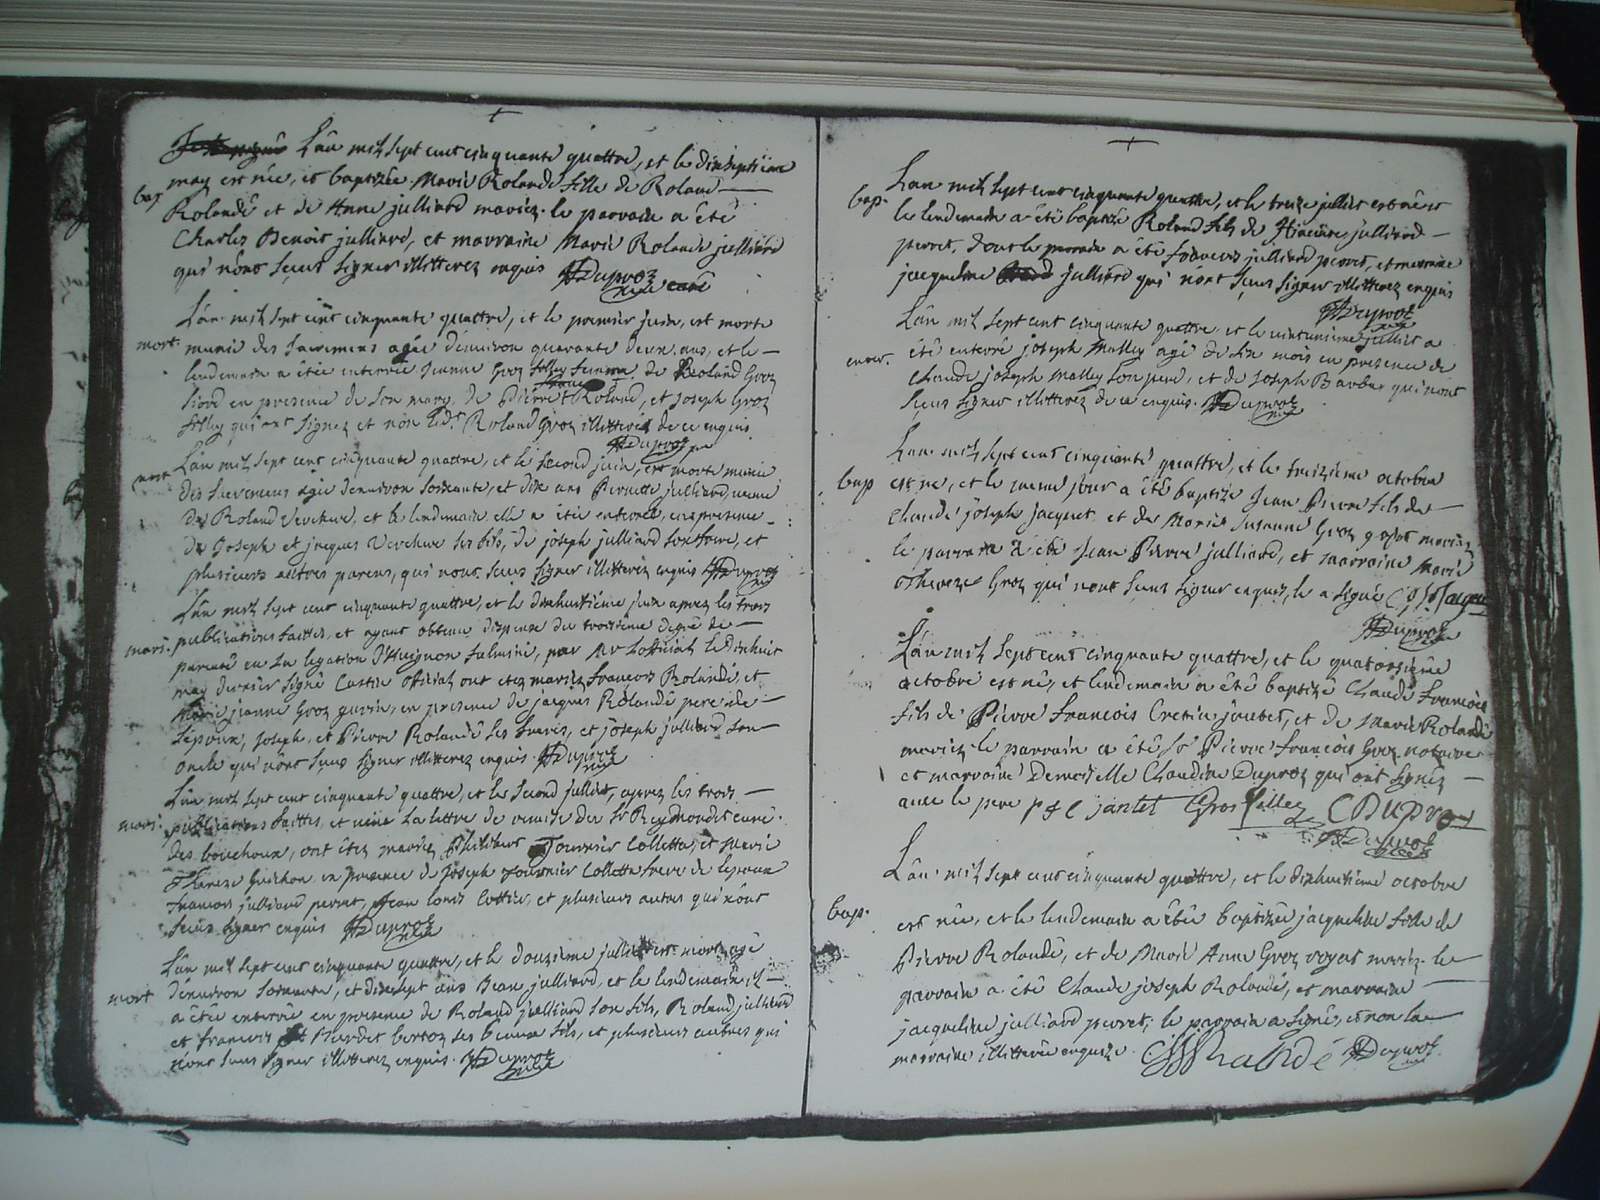 L'an mil sept cent cinquante quattre, et le dixseptieme
bap
may est née, et baptizée Marie Rolandé fille de Roland
Rolandé et de Anne julliard mariez. le parrain a été
Charles Benoit julliard, et marraine Marie Rolandé julliard
qui n'ont sceus signer illitterez enquis Duproz curé
L'an mil sept cent cinquante quattre, et le premier juin, est morte
mort.
munie des sacremens agée d'environ quarante deux ans, et le
lendemain a étée enterrée Jeanne Groz femme de Roland Groz
en presence de son mary, de Pierre Roland, et joseph Groz
qui ont signez et non led.t Roland Groz illitteré de ce enquis
Duproz
L'an mil sept cent cinquante quattre, et le second juin, est morte munie
mort
des sacremens agée d'environ soixante, et dix ans Pernette julliard, veuve
de Roland, et le lendemain elle a étée enterrée, en presence
de Joseph et jacques ses fils, de joseph julliard son frere, et
plusieurs aultres parens, qui n'ont sceus signer illitterez enquis Duproz
L'an mil sept cent cinquante quattre, et le dixhuitiéme juin aprez les trois
mari.
publications faittes, et ayant obtenu dispense du troisième degré de
parenté en la legation d'Avignon fulminé, par Mr l'official le dixhuit
may dernier signé official ont etez mariez francois Rolandé, et
Marie jeanne Groz, en presence de jacques Rolandé pere de
l'epoux, joseph, et Pierre Rolandé ses freres, et joseph julliard son
oncle qui n'ont sceus signer illitterez enquis Duproz
L'an mil sept cent cinquante quattre, et le second julliet, aprez les trois
mari.
publications faittes, et veüe la lettre de du Sr Reymondet curé
des bouchoux, ont étez mariez Philibert Tournier Colletta, et Marie
Therese Guichon en presence de joseph Tournier Colletta frere de l'epoux
francois julliard perret, Jean louis, et plusieurs autres qui n'ont
sceus signer enquis Duproz
L'an mil sept cent cinquante quattre, et le douzieme julliet est mort agé
mort
d'environ soixante, et dixsept ans Jean julliard, et le lendemain il
a étée enterré en presence de Roland julliard son fils, Roland julliard
et francois ses beaux fils, et plusieurs autres qui
n'ont sceus signer illitterez enquis. Duproz
L'an mil sept cent cinquante quattre, et le treize julliet est né et
bap.
le lendemain a été baptizé Roland fils de julliard
perret, dont le parrain a été francois julliard perret, et marraine
jacqueline julliard qui n'ont sceus signer illitterez enquis
Duproz
L'an mil sept cent cinquante quattre, et le julliet a
enter.
été enterré joseph Malley agé de dix mois en presence de
Claude joseph Malley son pere, et de joseph Barbe qui n'ont
sceus signer illitterez de ce enquis. Duproz
L'an mil sept cent cinquante quattre, et le treizieme octobre
bap
est né, et le meme jour a été baptizé Jean Pierre fils de
Claude joseph Jacquet et de Marie Susanne Groz mariez
le parrain a été Jean Pierre julliard, et marraine Marie
Groz qui n'ont sceus signer enquis, le a signé
Duproz
L'an mil sept cent cinquante quattre, et le quatorzieme
octobre est né, et lendemain a été baptizé Claude Francois
fils de Pierre francois Cretin, et de Marie Rolandé
mariez. le parrain a été Sr Pierre francois Groz notaire
et marraine Demoiselle Claudine Duproz qui ont signez
avec le pere Gros C Duproz
Duproz
L'an mil sept cent cinquante quattre, et le dixhuitieme octobre
bap.
est née, et le lendemain a étée baptizée jacqueline fille de
Pierre Rolandé, et de Marie Anne Groz mariez. le
parrain a été Claude joseph Rolandé, et marraine
jacqueline julliard perret; le parrain a signé, et non la
marraine illitterée enquize. Duproz